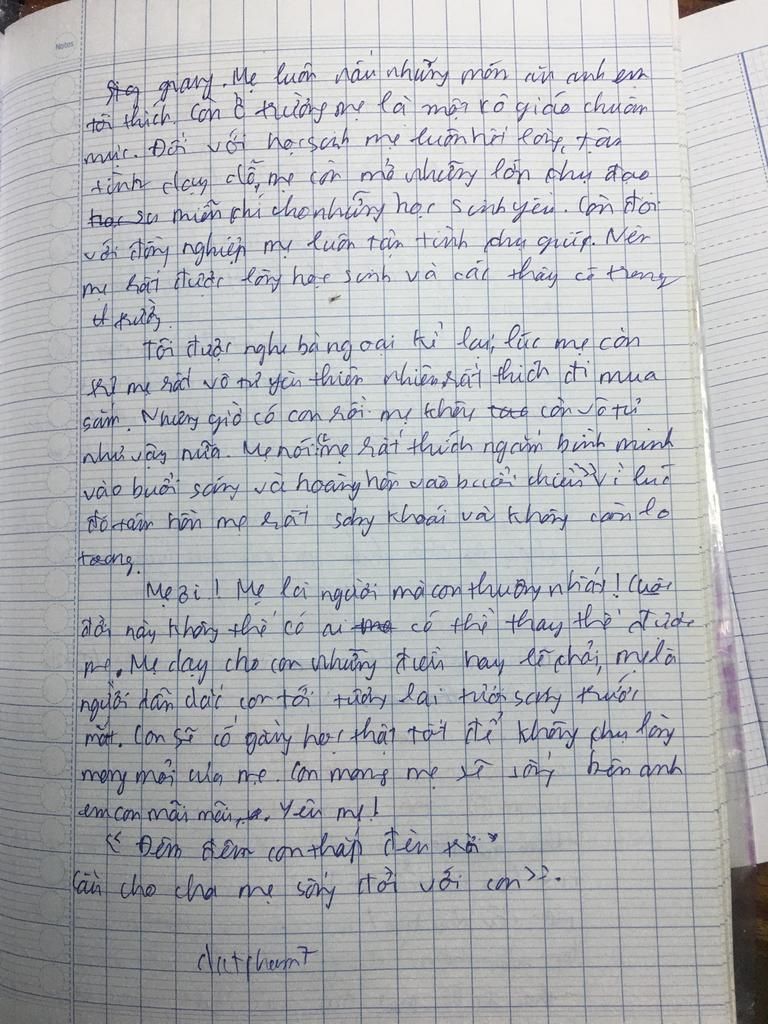 Notes
grang. Mẹ luôn nấu những món ăn anh em
tôi thích. Còn ở trường mẹ là một cô giáo chuẩn
mực. Đối với học sinh mẹ luôn hết lòng, tận
tình dạy dỗ, mẹ còn mở những lớp phụ đạo
miễn phí cho những học sinh yếu. Còn đối
với đồng nghiệp mẹ luôn tận tình phụ giúp. Nên
mẹ rất được lòng học sinh và các thầy cô trong
trường.
Tôi được nghe bà ngoại kể lại, lúc mẹ còn
trẻ mẹ rất vô tư yêu thiên nhiên rất thích đi mua
sắm. Nhưng giờ có con rồi mẹ không còn vô tư
như vậy nữa. Mẹ nói "mẹ rất thích ngắm bình minh
vào buổi sáng và hoàng hôn vào buổi chiều" vì lúc
đó tâm hồn mẹ rất sảng khoái và không cần lo
Mẹ ơi! Mẹ là người mà con thương nhất! Cuộc
đời này không thể có ai có thể thay thế được
mẹ. Mẹ dạy cho con những điều hay lẽ phải, mẹ là
người dẫn dắt con tới tương lai tươi sáng trước
mắt. Con sẽ cố gắng học thật tốt để không phụ lòng
mong mỏi của mẹ. Con mong mẹ sẽ sống bên anh
em con mãi mãi. Yêu mẹ!
"Đêm đêm con thắp đèn trời
Cầu cho cha mẹ sống đời với con".